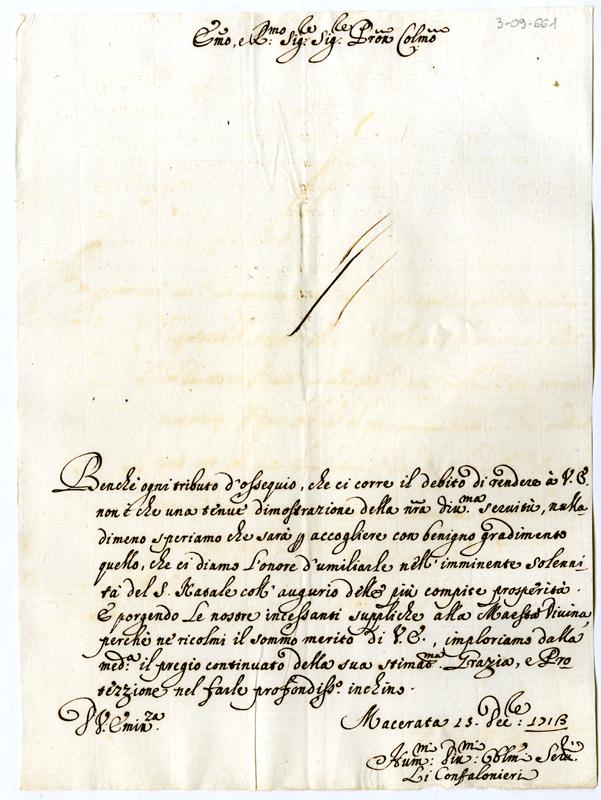 3-09-661
Emo, e R.mo Sig.re Sig.re Pron Colmo
Benchè ogni tributo d'ossequio, che ci corre il debito di rendere à V. E.
non è che una tenue dimostrazione della nra div.ma servitù, nulla
dimeno speriamo che sarà p accogliere con benigno gradimento
quello, che ci diamo l'onore d'umiliarle nell' imminente solenni
tà del S. Natale coll' augurio delle più compite prosperità.
E porgendo le nostre incessanti suppliche alla Maestà Divina
perchè ne ricolmi il sommo merito di V. E., imploriamo dalla
med.a il pregio continuato della sua stimat.ma Grazia, e Pro
tezzione nel farle profondiss.o inchino.
D V. Emin.za
Macerata 15. Xbre: 1713
Hum.mi Div.mi Obl.mi Ser.ri
Li Confalonieri